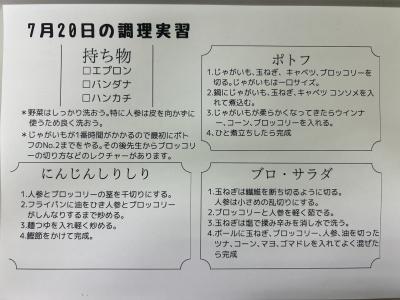 7月20日の調理実習
持ち物
□エプロン
□バンダナ
□ハンカチ
＊野菜はしっかり洗おう。特に人参は皮を向かずに
使うため良く洗おう。
＊じゃがいもが1番時間がかかるので最初にポト
フのNo.2までをやる。その後先生からブロッコリ
ーの切り方などのレクチャーがあります。
ポトフ
1.じゃがいも、玉ねぎ、キャベツ、ブロッコリーを
切る。じゃがいもは一口サイズ。
2.鍋にじゃがいも、玉ねぎ、キャベツ コンソメを入
れて煮込む。
3.じゃがいもが柔らかくなってきたらウインナ
ー、コーン、ブロッコリーを入れる。
4.ひと煮立ちしたら完成
にんじんしりしり
1.人参とブロッコリーの茎を千切りにする。
2.フライパンに油をひき人参とブロッコリー
がしんなりするまで炒める。
3.麺つゆを入れ軽く炒める。
4.鰹節をかけて完成。
ブロ・サラダ
1.玉ねぎは繊維を断ち切るように切る。
人参は小さめの乱切りにする。
2.ブロッコリーと人参を軽く茹でる。
3.玉ねぎは塩で揉み辛みを消し水で洗う。
4.ボールに玉ねぎ、ブロッコリー、人参、油を切った
ツナ、コーン、マヨ、ゴマドレを入れてよく混ぜた
ら完成